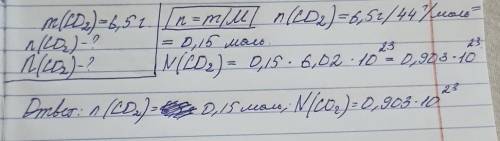 m(CO₂)=6,5г | n=m/M | n(CO₂)=6,5г/44г/моль=
n(CO₂)-? = 0,15 моль.
N(CO₂)-? N(CO₂) = 0,15 · 6,02 · 10²³ = 0,903 · 10²³
Ответ: n(CO₂)= 0,15 моль; N(CO₂)=0,903·10²³